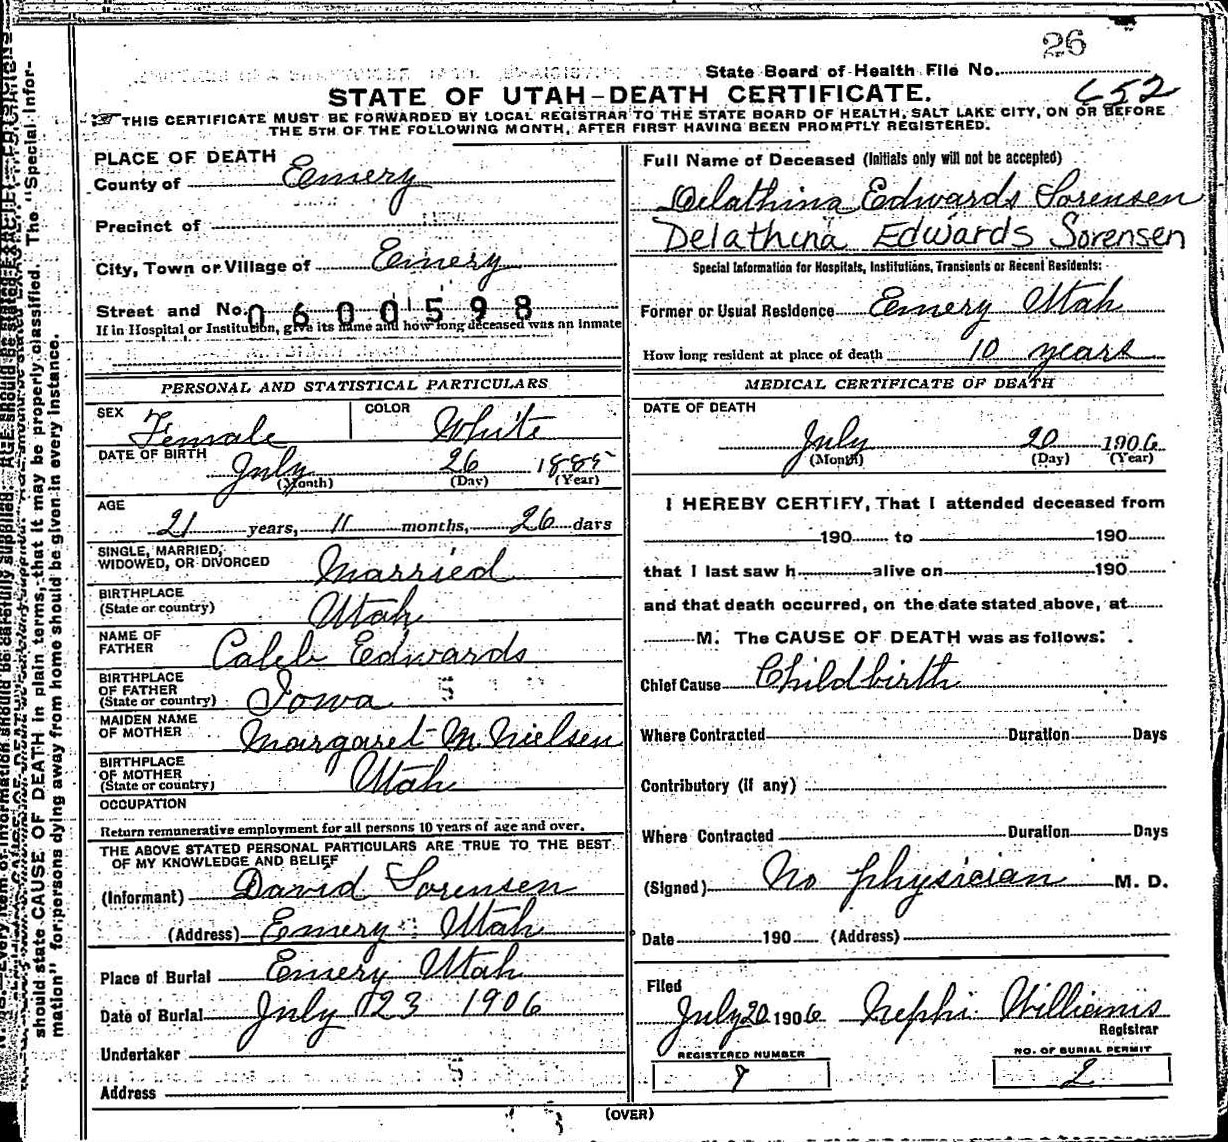 26
State Board of Health File No.
652
STATE OF UTAH–DEATH CERTIFICATE.
THIS CERTIFICATE MUST BE FORWARDED BY LOCAL REGISTRAR TO THE STATE BOARD OF HEALTH, SALT LAKE CITY, ON OR BEFORE
THE 5TH OF THE FOLLOWING MONTH, AFTER FIRST HAVING BEEN PROMPTLY REGISTERED.
PLACE OF DEATH
County of Emery
Precinct of
City, Town or Village of Emery
Street and No. 0600598
If in Hospital or Institution, give its name and how long deceased was an inmate
Full Name of Deceased (Initials only will not be accepted)
Delathina Edwards Sorensen
Delathina Edwards Sorensen
Special Information for Hospitals, Institutions, Transients or Recent Residents:
Former or Usual Residence Emery Utah
How long resident at place of death 10 years
PERSONAL AND STATISTICAL PARTICULARS
SEX Female COLOR White
DATE OF BIRTH July 26 1885
(Month) (Day) (Year)
AGE
21 years, 11 months, 26 days
SINGLE, MARRIED,
WIDOWED, OR DIVORCED Married
BIRTHPLACE
(State or country) Utah
NAME OF
FATHER Caleb Edwards
BIRTHPLACE
OF FATHER
(State or country) Iowa
MAIDEN NAME
OF MOTHER Margaret M. Nielsen
BIRTHPLACE
OF MOTHER
(State or country) Utah
OCCUPATION
Return remunerative employment for all persons 10 years of age and over.
THE ABOVE STATED PERSONAL PARTICULARS ARE TRUE TO THE BEST
OF MY KNOWLEDGE AND BELIEF
(Informant) David Sorensen
(Address) Emery Utah
Place of Burial Emery Utah
Date of Burial July 23 1906
Undertaker
Address
MEDICAL CERTIFICATE OF DEATH
DATE OF DEATH
July 20 1906
(Month) (Day) (Year)
I HEREBY CERTIFY, That I attended deceased from
190 to 190
that I last saw h alive on 190
and that death occurred, on the date stated above, at
M. The CAUSE OF DEATH was as follows:
Chief Cause Childbirth
Where Contracted Duration Days
Contributory (if any)
Where Contracted Duration Days
(Signed) No physician M. D.
Date 190 (Address)
Filed
July 20 1906 Nephi Williams
Registrar
REGISTERED NUMBER NO. OF BURIAL PERMIT
9 2
(OVER)
should state CAUSE OF DEATH in plain terms, that it may be properly classified. The "Special Infor-
mation" for persons dying away from home should be given in every instance.